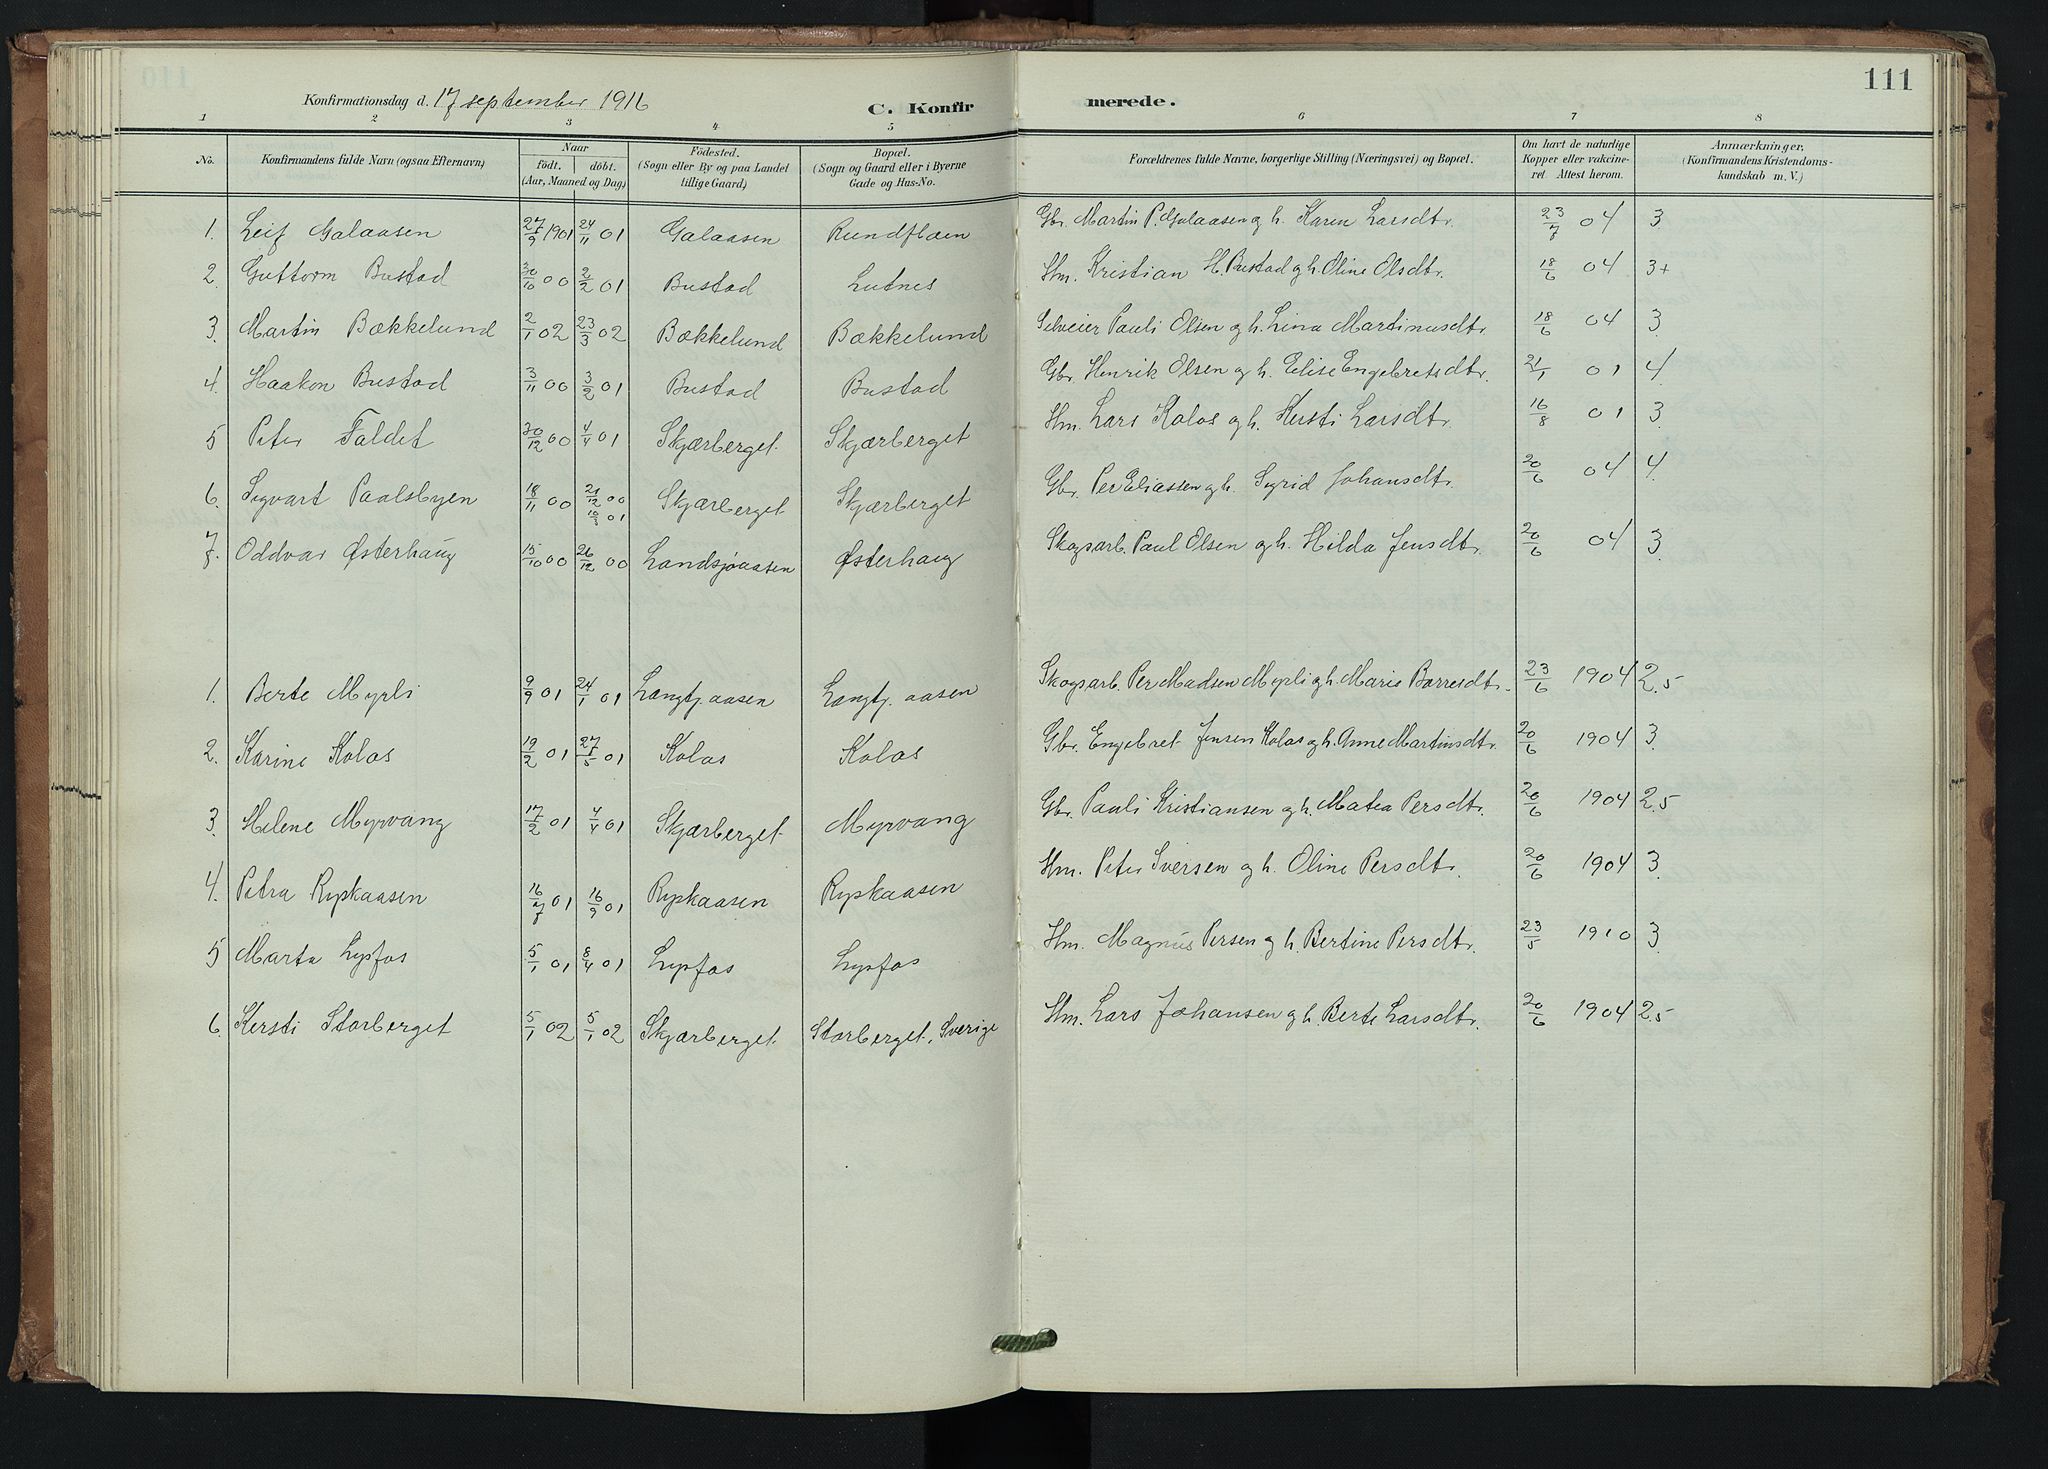 111
Konfirmationsdag d. 17 september 1916 C. Konfirmerede.
1 2 3 4 5 6 7 8
No. Konfirmandens fulde Navn (ogsaa Efternavn) Naar födt. döbt. (Aar, Maaned og Dag) Födested. (Sogn eller By og paa Landet tillige Gaard) Bopæl. (Sogn og Gaard eller i Byerne Gade og Hus-No. Forældrenes fulde Navne, borgerlige Stilling (Næringsvei) og Bopæl. Om havt de naturlige Kopper eller vakcineret. Attest herom. Anmærkninger, (Konfirmandens Kristendomskundskab m. V.)
1. Leif Galaasen 27/9 1901 24/11 01 Galaasen Rundfloen Gbr. Martin P. Galaasen og h. Karen Larsdtr. 23/7 04 3
2. Guttorm Bustad 30/10 00 2/2 01 Bustad Lutnes Hm. Kristian H. Bustad og h. Oline Olsdtr. 18/6 04 3+
3. Martin Bækkelund 2/1 02 23/3 02 Bækkelund Bækkelund Selveier Pauli Olsen og h. Lina Martinusdtr. 18/6 04 3
4. Haakon Bustad 3/11 00 3/2 01 Bustad Bustad Gbr. Henrik Olsen og h. Elise Engebretsdtr. 21/1 01 4
5 Peter Faldet 30/12 00 4/4 01 Skjærberget. Skjærberget Hm. Lars Kolos og h. Kersti Larsdtr. 16/8 01 3
6. Sigvart Paalsbyen 18/11 00 21/12 00 01 Skjærberget Skjærberget Gbr. Per Eliassen og h. Sigrid Johansdtr. 20/6 04 4.
7. Oddvar Østerhaug 15/10 00 26/12 00 Landsjøaasen Østerhaug Skogsarb. Paul Olsen og h. Hilda Jensdtr. 20/6 04 3.
1. Berte Myrli 9/9 01 24/1 01 Langtj. aasen Langtj. aasen Skogsarb. Per Madsen Myrli og h. Maris Borresdtr. 23/6 1904 2.5
2. Karine Kolos 19/2 01 27/5 01 Kolos Kolos Gbr. Engebret Jensen Kolos og h. Anne Martinsdtr. 20/6 1904 3.
3. Helene Myrvang 17/2 01 4/4 01 Skjærberget. Myrvang Gbr. Pauli Kristiansen og h. Matea Persdtr. 20/6 1904 2.5
4. Petra Rypkaasen 16/7 01 16/9 01 Rypkaasen Rypkaasen Hm. Peter Iversen og h. Oline Persdtr. 20/6 1904 3.
5 Marta Lysfos 5/1 01 8/4 01 Lysfos Lysfos Hm. Magnus Persen og h. Bertine Persdtr. 23/5 1910 3
6. Kersti Storberget 5/1 02 5/1 02 Skjærberget. Storberget, Sverige Hm. Lars Johansen og h. Berte Larsdtr. 20/6 1904 2.5